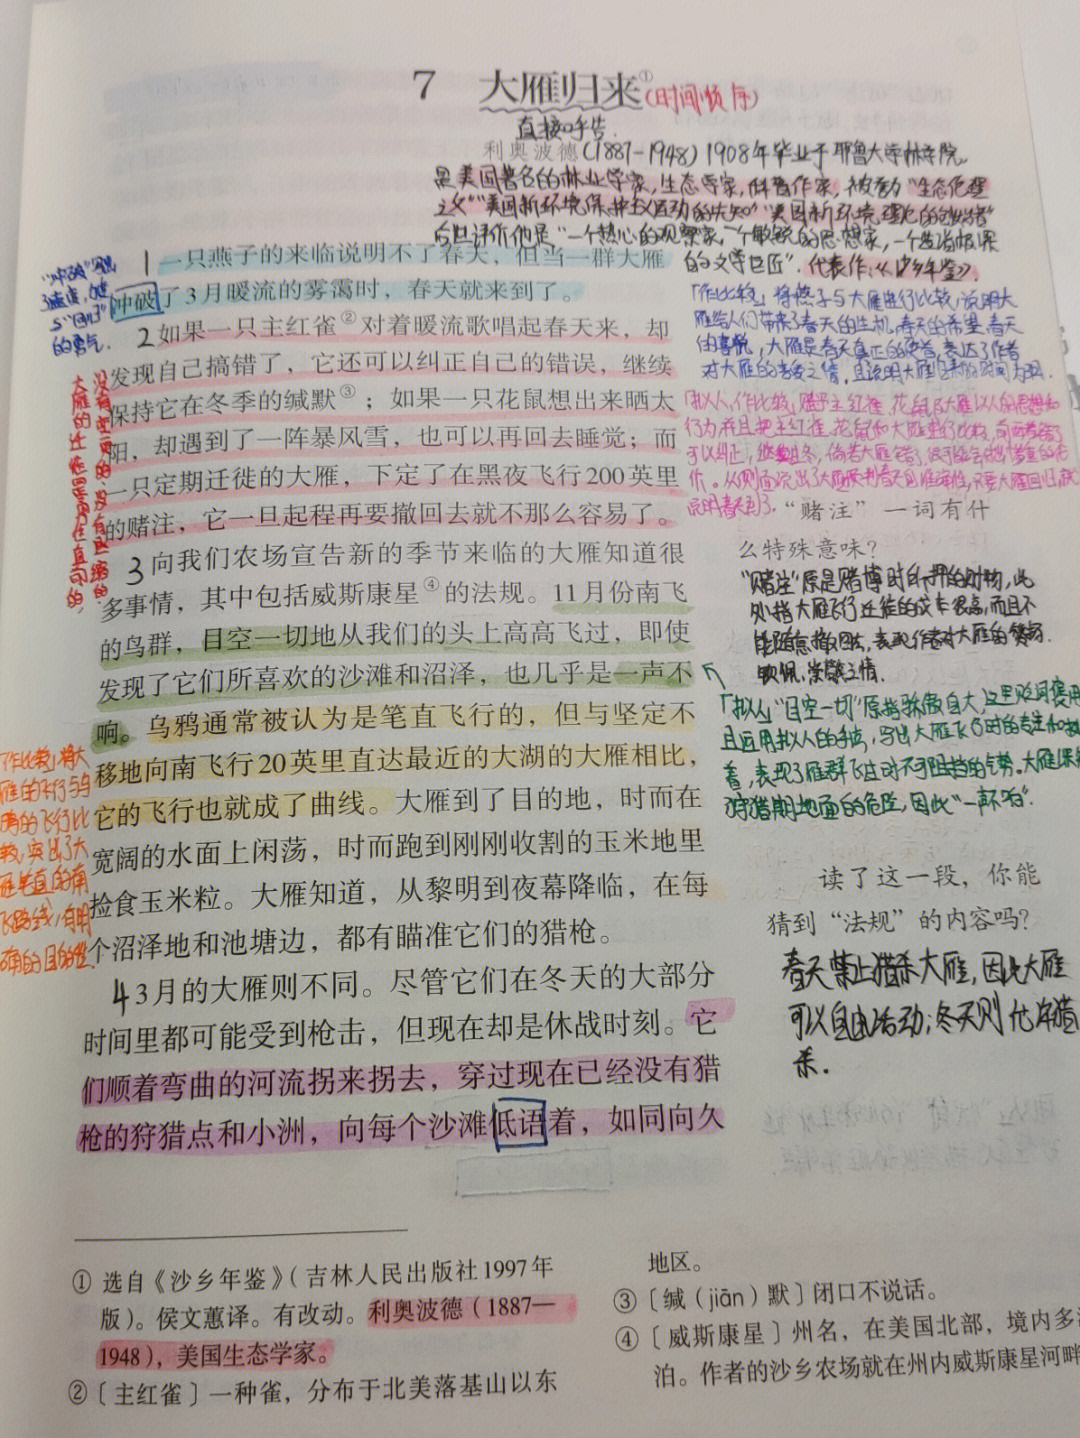 7 大雁归来①
(时间顺序)
直接呼告.
利奥波德(1887-1948) 1908年毕业于耶鲁大学林学院,
是美国著名的林业学家,生态学家,科普作家,被誉为"生态伦理
之父""美国新环境保护主义运动的先知""美国新环境理论的创始者"
后世评价他是"一个热心的观察家,一个敏锐的思想家,一个造诣极深
的文学巨匠".代表作:《沙乡年鉴》.
1一只燕子的来临说明不了春天,但当一群大雁
冲破了3月暖流的雾霭时,春天就来到了。
2如果一只主红雀②对着暖流歌唱起春天来,却
发现自己搞错了,它还可以纠正自己的错误,继续
保持它在冬季的缄默③;如果一只花鼠想出来晒太
阳,却遇到了一阵暴风雪,也可以再回去睡觉;而
一只定期迁徙的大雁,下定了在黑夜飞行200英里
的赌注,它一旦起程再要撤回去就不那么容易了。
3向我们农场宣告新的季节来临的大雁知道很
多事情,其中包括威斯康星④的法规。11月份南飞
的鸟群,目空一切地从我们的头上高高飞过,即使
发现了它们所喜欢的沙滩和沼泽,也几乎是一声不
响。乌鸦通常被认为是笔直飞行的,但与坚定不
移地向南飞行20英里直达最近的大湖的大雁相比,
它的飞行也就成了曲线。大雁到了目的地,时而在
宽阔的水面上闲荡,时而跑到刚刚收割的玉米地里
捡食玉米粒。大雁知道,从黎明到夜幕降临,在每
个沼泽地和池塘边,都有瞄准它们的猎枪。
43月的大雁则不同。尽管它们在冬天的大部分
时间里都可能受到枪击,但现在却是休战时刻。它
们顺着弯曲的河流拐来拐去,穿过现在已经没有猎
枪的狩猎点和小洲,向每个沙滩低语着,如同向久
"冲破"写出
的勇气.
作比较,将大
雁的飞行与乌
鸦的飞行比
较,突出了大
雁笔直的南
飞路线,有明
确的目的性
「作比较」将燕子与大雁进行比较,说明大
雁给人们带来了春天的生机,春天的希望,春天
的喜悦,大雁是春天真正的使者,表达了作者
对大雁的喜爱之情,且说明大雁归来的时间为3月.
"赌注"一词有什
么特殊意味?
"赌注"原是赌博时所押的财物,此
处指大雁飞行迁徙的成本很高,而且不
能随意撤回去,表现作者对大雁的赞扬.
钦佩,崇敬之情.
「拟人」"目空一切"原指骄傲自大,这里贬词褒用
且运用拟人的手法,写出大雁飞行时的专注和执
着,表现了雁群飞过时不可阻挡的气势。大雁深知
狩猎期地面的危险,因此"一声不响".
读了这一段,你能
猜到"法规"的内容吗?
春天禁止猎杀大雁,因此大雁
可以自由活动;冬天则允许猎
杀.
① 选自《沙乡年鉴》(吉林人民出版社1997年
版)。侯文蕙译。有改动。利奥波德(1887—
1948),美国生态学家。
② 〔主红雀〕一种雀,分布于北美落基山以东
地区。
③ 〔缄(jiān)默〕闭口不说话。
④ 〔威斯康星〕州名,在美国北部,境内多
泊。作者的沙乡农场就在州内威斯康星河畔